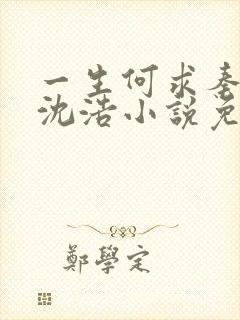 一生何求秦
沈浩小說免
鄭學定